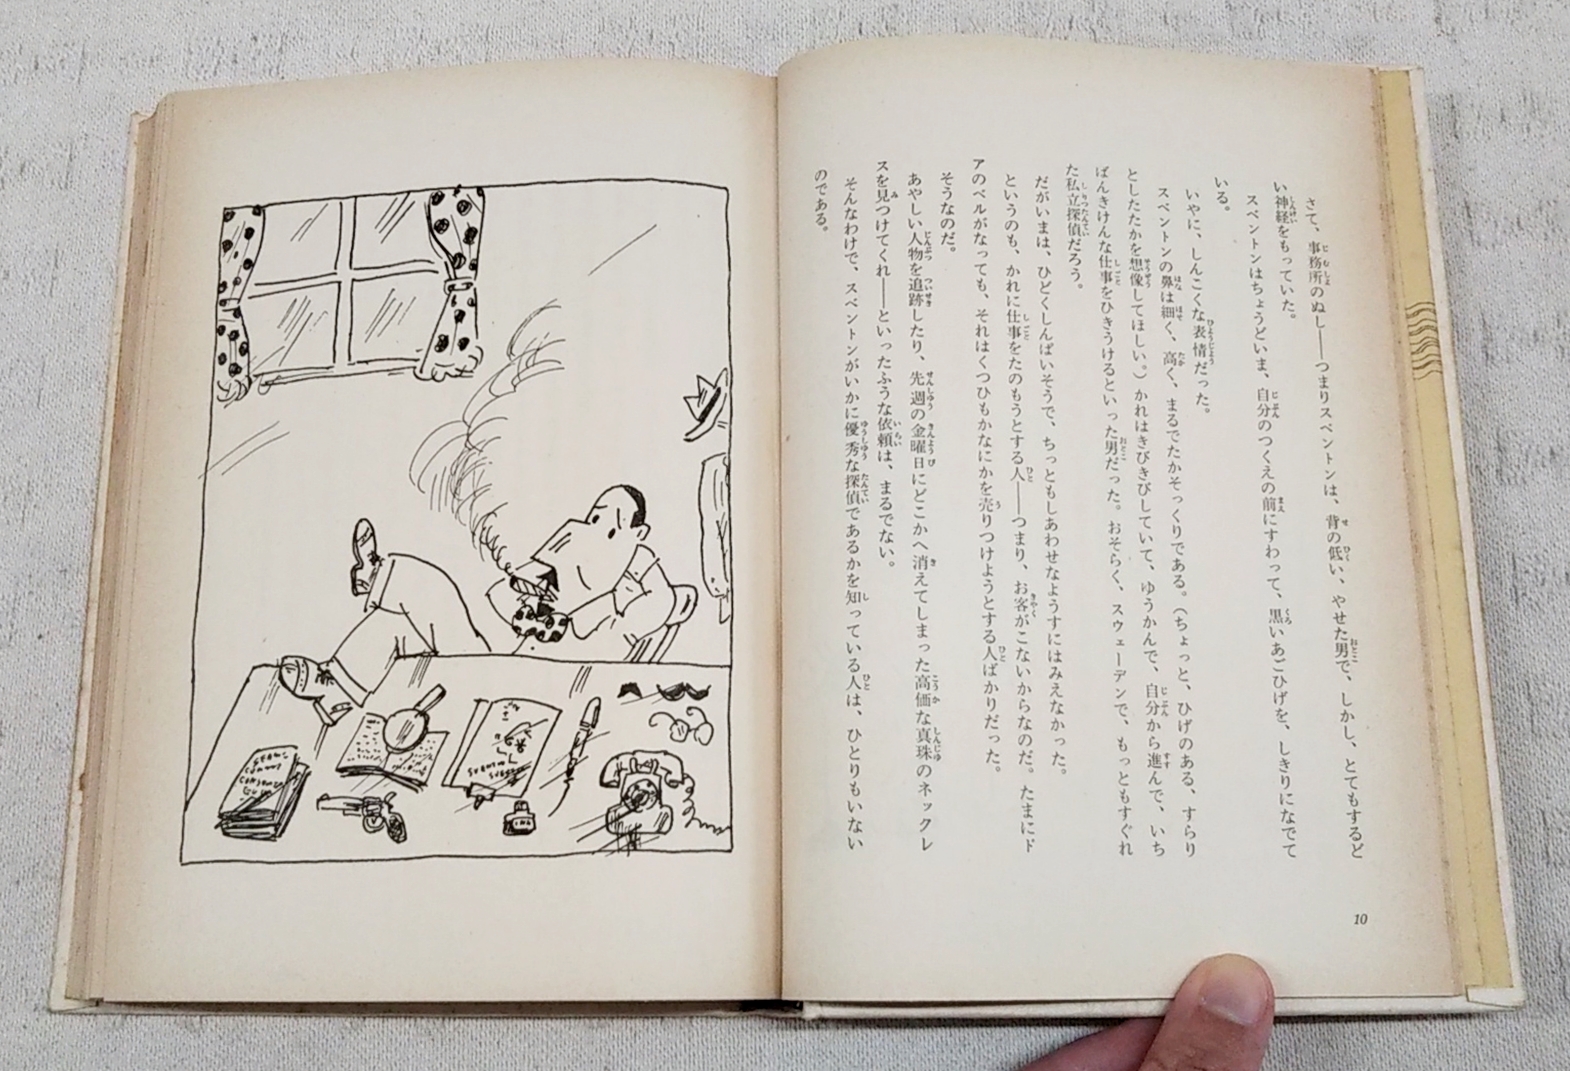 さて、事務所のぬし――つまりスペントンは、背の低い、やせた男で、しかし、とてもするど
い神経をもっていた。
スペントンはちょうどいま、自分のつくえの前にすわって、黒いあごひげを、しきりになでて
いる。
いやに、しんこくな表情だった。
スペントンの鼻は細く、高く、まるでたかそっくりである。（ちょっと、ひげのある、すらり
としたたかを想像してほしい。）かれはきびきびしていて、ゆうかんで、自分から進んで、いち
ばんきけんな仕事をひきうけるといった男だった。おそらく、スウェーデンで、もっともすぐれ
た私立探偵だろう。
だがいまは、ひどくしんぱいそうで、ちっともしあわせなようすにはみえなかった。
というのも、かれに仕事をたのもうとする人――つまり、お客がこないからなのだ。たまにド
アのベルがなっても、それはくつひもかなにかを売りつけようとする人ばかりだった。
そうなのだ。
あやしい人物を追跡したり、先週の金曜日にどこかへ消えてしまった高価な真珠のネックレ
スを見つけてくれ――といったふうな依頼は、まるでない。
そんなわけで、スペントンがいかに優秀な探偵であるかを知っている人は、ひとりもいない
のである。
10